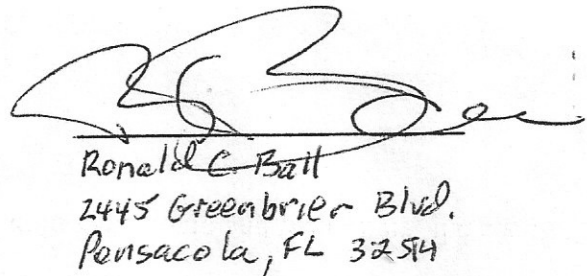 Ronald C. Ball
2445 Greenbrier Blvd.
Pensacola, FL 32514